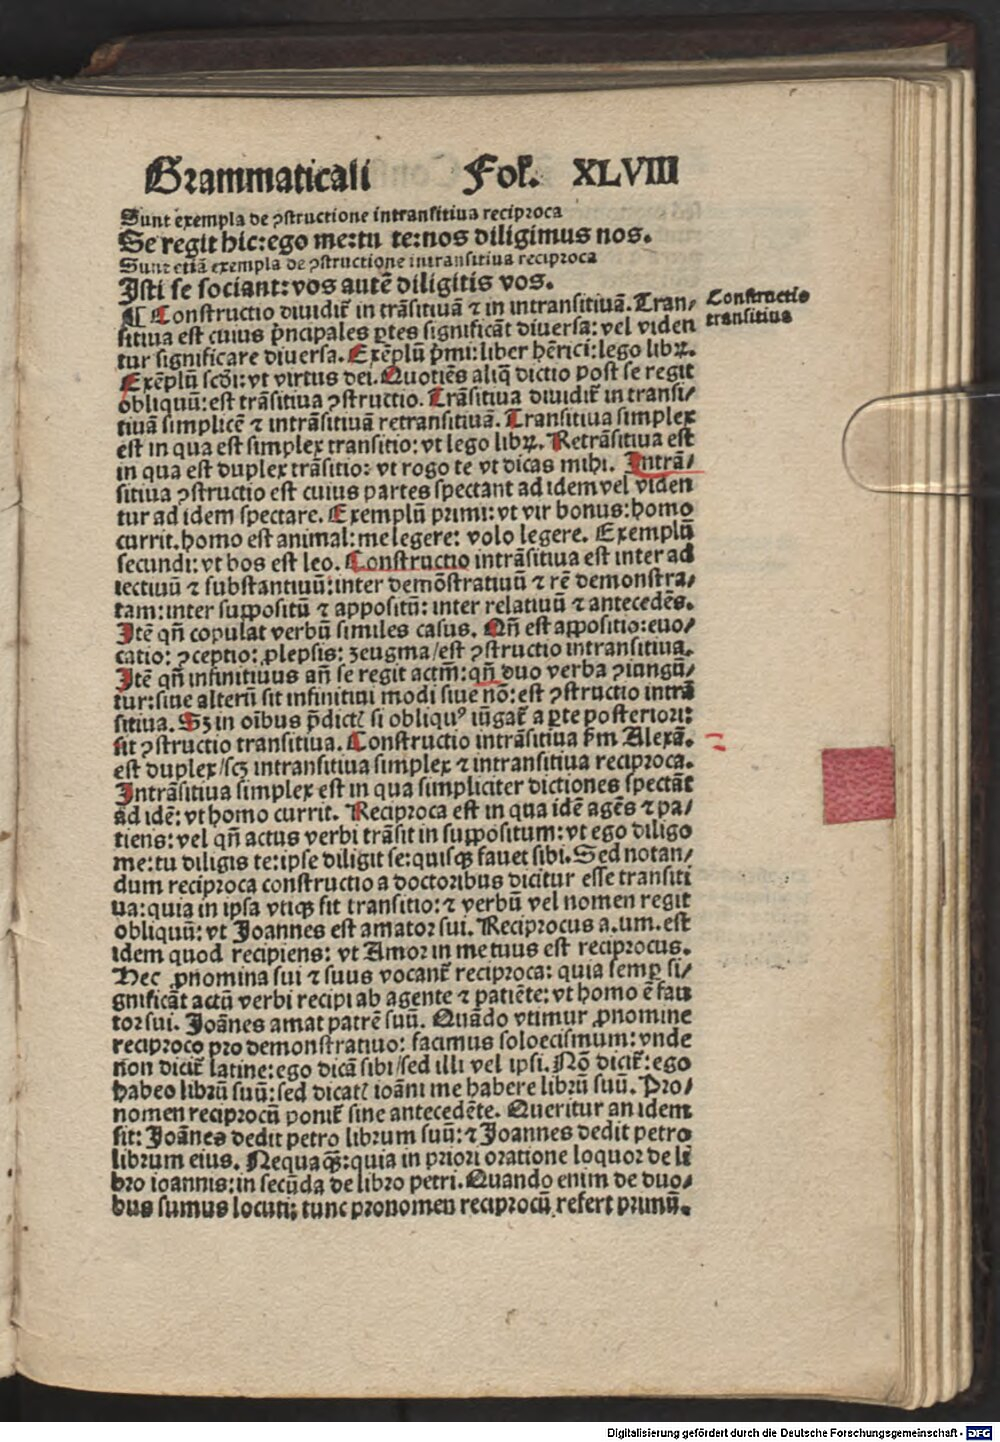 Grammaticali Fol. XLVIII
Sunt exempla de ꝯstructione intransitiua reciproca
Se regit hic: ego me: tu te: nos diligimus nos.
Sunt etiã exempla de ꝯstructione intransitiua reciproca
Isti se sociant: vos autẽ diligitis vos.
¶ Constructio diuidit᷑ in trãsitiuã ⁊ in intransitiuã. Tran/
Constructio
transitiua
sitiua est cuius p̃ncipales ꝑtes significãt diuersa: vel viden
tur significare diuersa. Exẽplũ p̃mi: liber hẽrici: lego libꝝ.
Exẽplũ scďi: vt virtus dei. Quotiẽs aliq̃ dictio post se regit
obliquũ: est trãsitiua ꝯstructio. Trãsitiua diuidit᷑ in transi/
tiuã simplicẽ ⁊ intrãsitiuã retransitiuã. Transitiua simplex
est in qua est simplex transitio: vt lego libꝝ. Retrãsitiua est
in qua est duplex trãsitio: vt rogo te vt dicas mihi. Intrã/
sitiua ꝯstructio est cuius partes spectant ad idem vel viden
tur ad idem spectare. Exemplũ primi: vt vir bonus: homo
currit. homo est animal: me legere: volo legere. Exemplũ
secundi: vt bos est leo. Constructio intrãsitiua est inter ad
iectiuũ ⁊ substantiuũ: inter demõstratiuũ ⁊ rẽ demonstra/
tam: inter suppositũ ⁊ appositũ: inter relatiuũ ⁊ antecedẽs.
Itẽ qñ copulat verbũ similes casus. Qñ est appositio: euo/
catio: ꝯceptio: ꝓlepsis: zeugma/ est ꝯstructio intransitiua.
Itẽ qñ infinitiuus añ se regit actm̃: qñ duo verba ꝯiungũ/
tur: siue alterũ sit infinitiui modi siue nõ: est ꝯstructio intrã
sitiua. Sꝫ in oĩbus p̃dictꝭ si obliquꝰ iũgat᷑ a ꝑte posteriori:
fit ꝯstructio transitiua. Constructio intrãsitiua ẜm Alexã.
est duplex/ scꝫ intransitiua simplex ⁊ intransitiua reciproca.
Intrãsitiua simplex est in qua simpliciter dictiones spectãt
ad idẽ: vt homo currit. Reciproca est in qua idẽ agẽs ⁊ pa/
tiens: vel qñ actus verbi trãsit in suppositum: vt ego diligo
me: tu diligis te: ipse diligit se: quisqꝫ fauet sibi. Sed notan/
dum reciproca constructio a doctoribus dicitur esse transiti
ua: quia in ipsa vtiqꝫ fit transitio: ⁊ verbũ vel nomen regit
obliquũ: vt Joannes est amator sui. Reciprocus a. um. est
idem quod recipiens: vt Amor in me tuus est reciprocus.
Hec ꝓnomina sui ⁊ suus vocant᷑ reciproca: quia semꝑ si/
gnificãt actũ verbi recipi ab agente ⁊ patiẽte: vt homo ẽ fau
tor sui. Joãnes amat patrẽ suũ. Quãdo vtimur ꝓnomine
reciproco pro demonstratiuo: facimus soloecismum: vnde
non dicit᷑ latine: ego dicã sibi/ sed illi vel ipsi. Nõ dicit᷑: ego
habeo librũ suũ: sed dicatꝭ ioãni me habere librũ suũ. Pro/
nomen reciprocũ ponit᷑ sine antecedẽte. Queritur an idem
sit: Joãnes dedit petro librum suũ: ⁊ Joannes dedit petro
librum eius. Nequaqꝫ: quia in priori oratione loquor de li
bro ioannis: in secũda de libro petri. Quando enim de duo/
bus sumus locuti: tunc pronomen reciprocũ refert primũ.
Digitalisierung gefördert durch die Deutsche Forschungsgemeinschaft - DFG